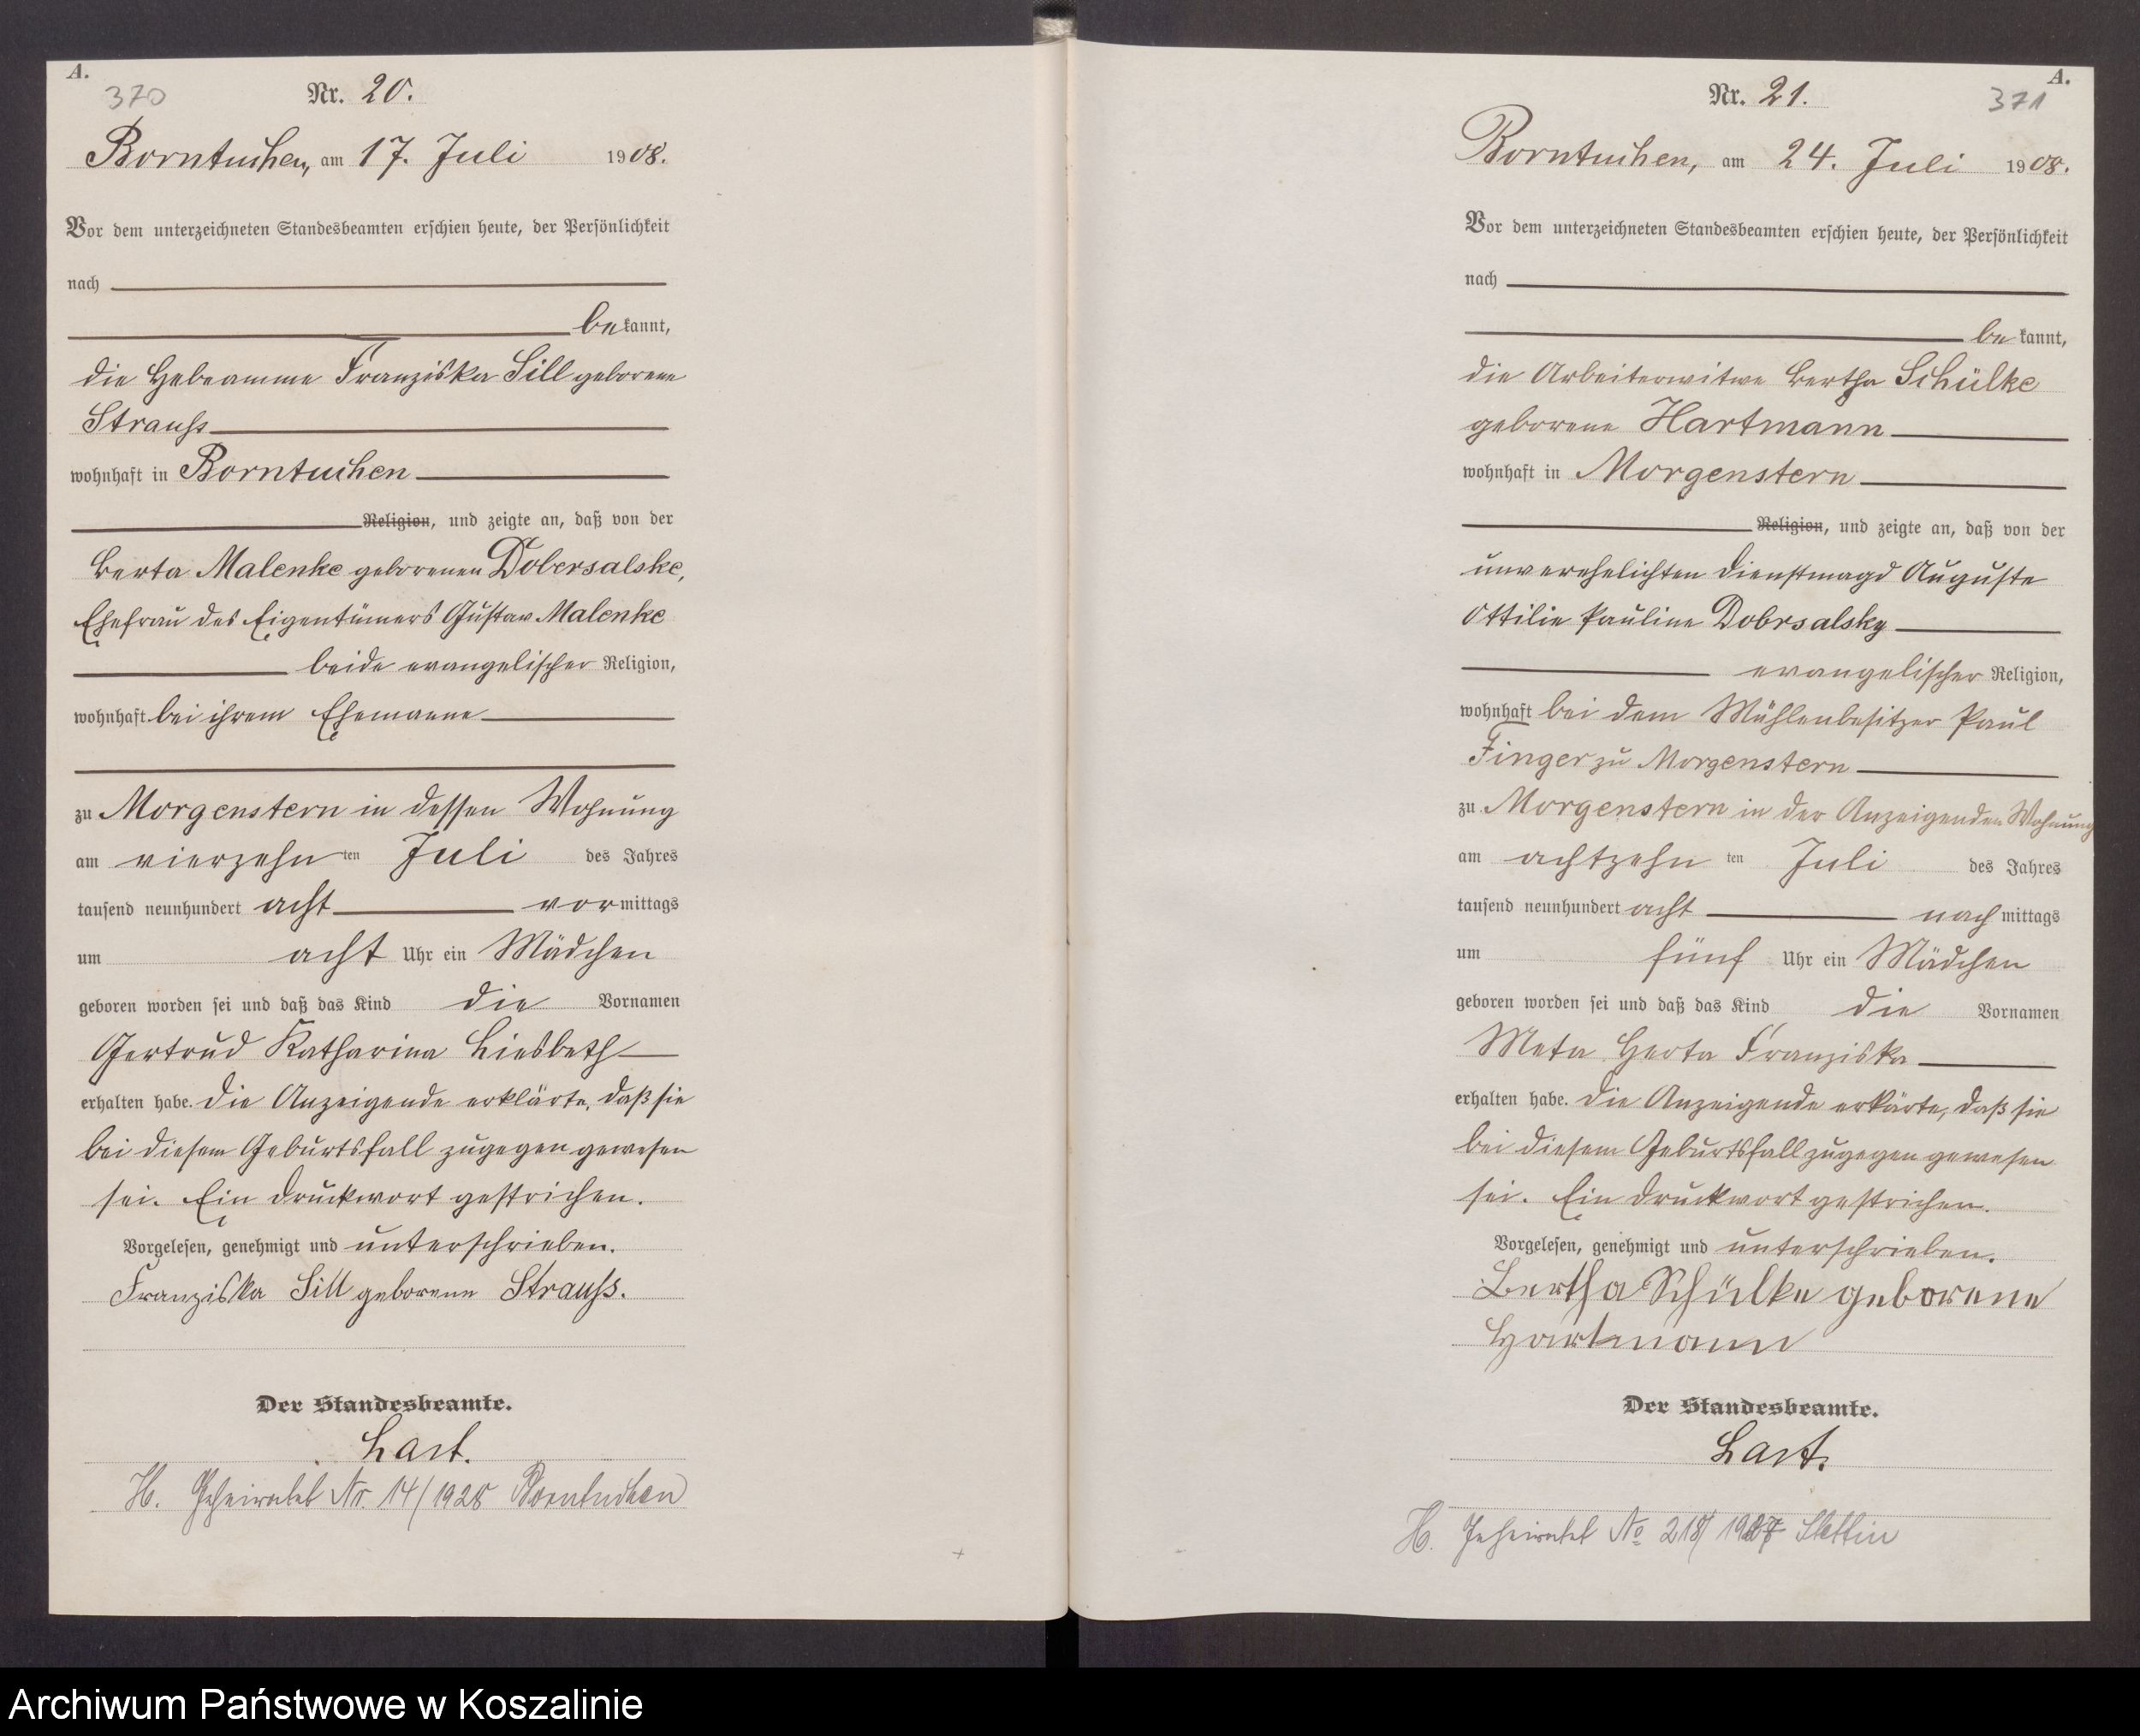 A.
370
Nr. 20.
Borntuchen, am 17. Juli 1908.
Vor dem unterzeichneten Standesbeamten erschien heute, der Persönlichkeit
nach
bekannt,
die Hebeamme Franziska Sill geborene
Strauss
wohnhaft in Borntuchen
Religion, und zeigte an, daß von der
Berta Malenke geborenen Dobersalske,
Ehefrau des Eigentümers Gustav Malenke
beide evangelischer Religion,
wohnhaft bei ihrem Ehemanne
zu Morgenstern in dessen Wohnung
am vierzehnten Juli des Jahres
tausend neunhundert acht vormittags
um acht Uhr ein Mädchen
geboren worden sei und daß das Kind die Vornamen
Gertrud Katharina Liesbeth
erhalten habe. Die Anzeigende erklärte, daß sie
bei diesem Geburtsfall zugegen gewesen
sei. Ein Druckwort gestrichen.
Vorgelesen, genehmigt und unterschrieben.
Franziska Sill geborene Strauss.
Der Standesbeamte.
Last.
H. Geheiratet Nr. 14/1928 Borntuchen
A.
371
Nr. 21.
Borntuchen, am 24. Juli 1908.
Vor dem unterzeichneten Standesbeamten erschien heute, der Persönlichkeit
nach
bekannt,
die Arbeiterwitwe Bertha Schülke
geborene Hartmann
wohnhaft in Morgenstern
Religion, und zeigte an, daß von der
unverehelichten Dienstmagd Auguste
Ottilie Pauline Dobrsalsky
evangelischer Religion,
wohnhaft bei dem Mühlenbesitzer Paul
Finger zu Morgenstern
zu Morgenstern in der Anzeigenden Wohnung
am achtzehnten Juli des Jahres
tausend neunhundert acht nachmittags
um fünf Uhr ein Mädchen
geboren worden sei und daß das Kind die Vornamen
Meta Herta Franziska
erhalten habe. Die Anzeigende erkärte, daß sie
bei diesem Geburtsfall zugegen gewesen
sei. Ein Druckwort gestrichen.
Vorgelesen, genehmigt und unterschrieben.
Bertha Schülke geborene
Hartmann
Der Standesbeamte.
Last.
H. Geheiratet No 218/ Stettin
Archiwum Państwowe w Koszalinie